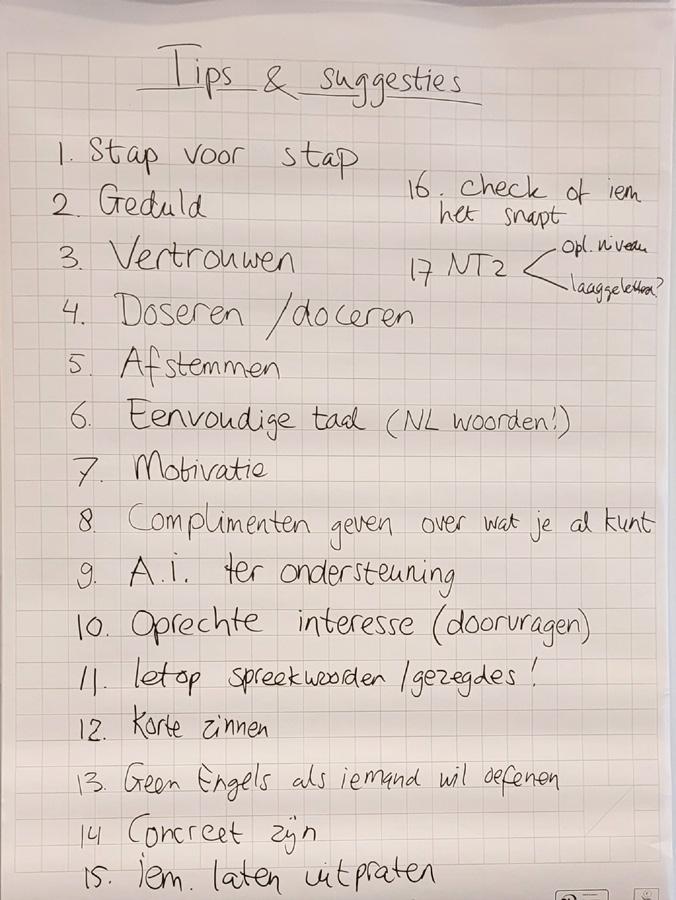 Tips & suggesties
1. Stap voor stap
2. Geduld
3. Vertrouwen
4. Doseren / doceren
5. Afstemmen
6. Eenvoudige taal (NL woorden!)
7. Motivatie
8. Complimenten geven over wat je al kunt
9. A.i. ter ondersteuning
10. Oprechte interesse (doorvragen)
11. letop spreekwoorden / gezegdes!
12. Korte zinnen
13. Geen Engels als iemand wil oefenen
14 Concreet zijn
15. iem. laten uitpraten
16. check of iem
het snapt
17 NT2
Opl. niveau
laaggeletterd?